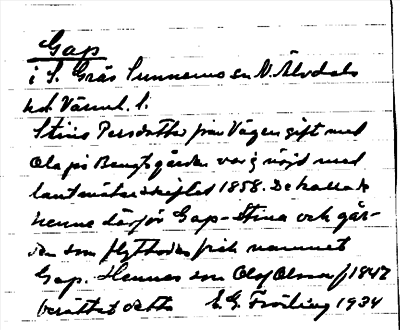 Gap
i S. Gräs Sunnemo sn N. Älvdals
hd Värml. l.
Stina Persdotter från Vägen gift med
Ola på Bengtsgården var ej nöjd med
lantmäteriskiftet 1858. De kallade
henne därför Gap-Stina och går-
den som flyttades fick namnet
Gap. Hennes son Olof Olsson f 1847
berättat detta E. G. Fröding 1934